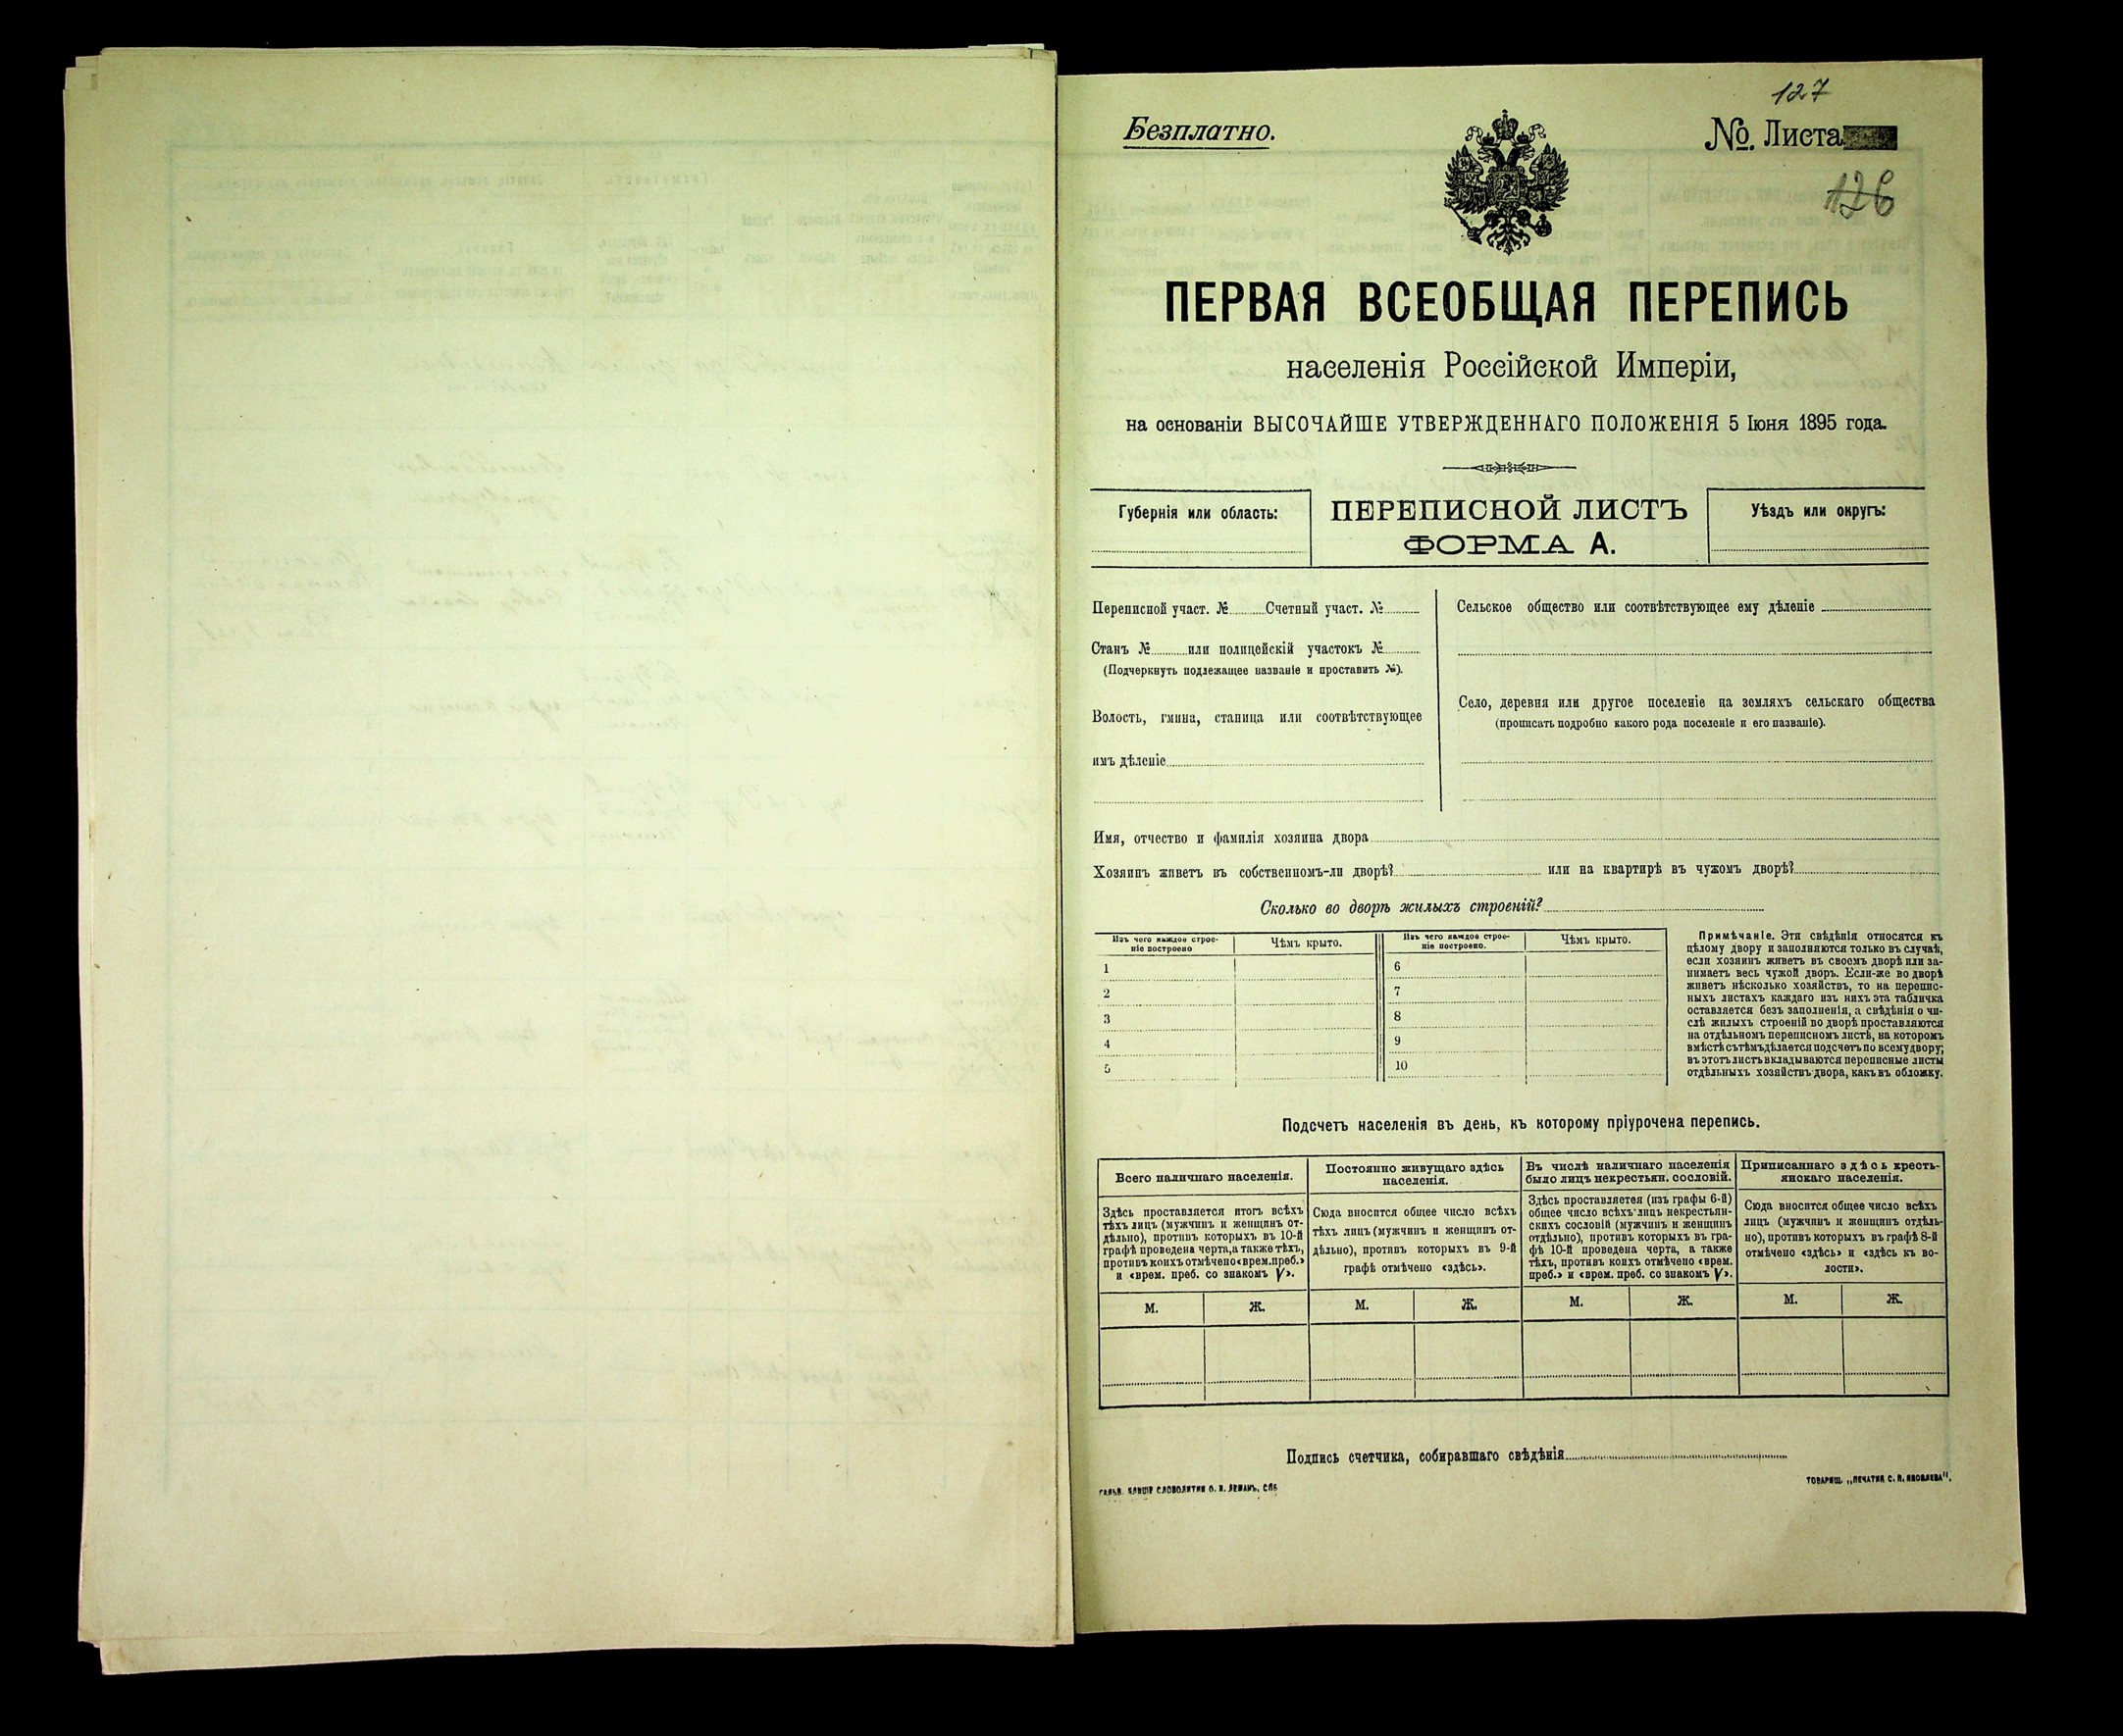 127
Безплатно.
№. Листа
126
ПЕРВАЯ ВСЕОБЩАЯ ПЕРЕПИСЬ
населенія Россійской Имперіи,
на основаніи ВЫСОЧАЙШЕ УТВЕРЖДЕННАГО ПОЛОЖЕНІЯ 5 Іюня 1895 года.
Губернія или область:
ПЕРЕПИСНОЙ ЛИСТЪ
ФОРМА А.
Уѣздъ или округъ:
Переписной участ. № Счетный участ. №
Станъ № или полицейскій участокъ №
(Подчеркнуть подлежащее названіе и проставить №).
Волость, гмина, станица или соотвѣтствующее
имъ дѣленіе
Сельское общество или соотвѣтствующее ему дѣленіе
Село, деревня или другое поселеніе на земляхъ сельскаго общества
(прописать подробно какого рода поселеніе и его названіе).
Имя, отчество и фамилія хозяина двора
Хозяинъ живетъ въ собственномъ-ли дворѣ? или на квартирѣ въ чужомъ дворѣ?
Сколько во дворѣ жилыхъ строеній?
Изъ чего каждое строе-
ніе построено
Чѣмъ крыто.
Изъ чего каждое строе-
ніе построено.
Чѣмъ крыто.
1
2
3
4
5
6
7
8
9
10
Примѣчаніе. Эти свѣдѣнія относятся къ
цѣлому двору и заполняются только въ случаѣ,
если хозяинъ живетъ въ своемъ дворѣ или за-
нимаетъ весь чужой дворъ. Если-же во дворѣ
живетъ нѣсколько хозяйствъ, то на перепис-
ныхъ листахъ каждаго изъ нихъ эта табличка
оставляется безъ заполненія, а свѣдѣнія о чи-
слѣ жилыхъ строеній во дворѣ проставляются
на отдѣльномъ переписномъ листѣ, на которомъ
вмѣстѣ съ тѣмъ дѣлается подсчетъ по всему двору;
въ этотъ листъ вкладываются переписные листы
отдѣльныхъ хозяйствъ двора, какъ въ обложку.
Подсчетъ населенія въ день, къ которому пріурочена перепись.
Всего наличнаго населенія.
Здѣсь проставляется итогъ всѣхъ
тѣхъ лицъ (мужчинъ и женщинъ от-
дѣльно), противъ которыхъ въ 10-й
графѣ проведена черта, а также тѣхъ,
противъ коихъ отмѣчено «врем. преб.»
и «врем. преб. со знакомъ V».
М. Ж.
Постоянно живущаго здѣсь
населенія.
Сюда вносится общее число всѣхъ
тѣхъ лицъ (мужчинъ и женщинъ от-
дѣльно), противъ которыхъ въ 9-й
графѣ отмѣчено «здѣсь».
М. Ж.
Въ числѣ наличнаго населенія
было лицъ некрестьян. сословій.
Здѣсь проставляется (изъ графы 6-й)
общее число всѣхъ лицъ некрестьян-
скихъ сословій (мужчинъ и женщинъ
отдѣльно), противъ которыхъ въ гра-
фѣ 10-й проведена черта, а также
тѣхъ, противъ коихъ отмѣчено «врем.
преб.» и «врем. преб. со знакомъ V».
М. Ж.
Приписаннаго здѣсь кресть-
янскаго населенія.
Сюда вносится общее число всѣхъ
лицъ (мужчинъ и женщинъ отдѣль-
но), противъ которыхъ въ графѣ 8-й
отмѣчено «здѣсь» и «здѣсь къ во-
лости».
М. Ж.
Подпись счетчика, собиравшаго свѣдѣнія
ГАЛЬВ. КЛИШЕ СЛОВОЛИТНИ О. И. ЛЕМАНЪ, СПБ
ТОВАРИЩ. „ПЕЧАТНЯ С. П. ЯКОВЛЕВА".